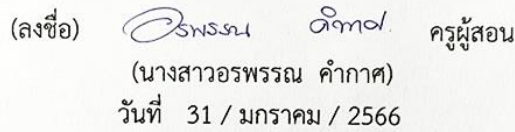 (ลงชื่อ) อรพรรณ คำกาศ ครูผู้สอน
(นางสาวอรพรรณ คำกาศ)
วันที่ 31 / มกราคม / 2566